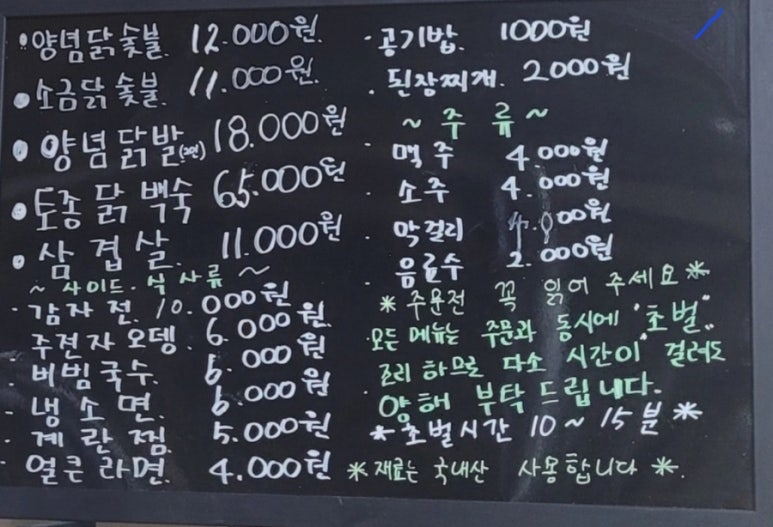 • 양념닭숯불. 12.000원.
• 소금닭숯불. 11.000원.
• 양념닭발(2인) 18.000원
• 토종닭백숙 65.000원
• 삼겹살. 11.000원
~ 사이드. 식사류 ~
· 감자전. 10.000원
주전자오뎅. 6.000원.
· 비빔국수. 6.000원
· 냉소면. 6.000원
· 계란찜. 5.000원
· 얼큰라면. 4.000원
· 공기밥. 1000원
· 된장찌개. 2000원
~ 주류 ~
· 맥주 4.000원
· 소주 4.000원
· 막걸리 4.000원
· 음료수 2.000원
* 주문전 꼭 읽어 주세요 *
· 모든 메뉴는 주문과 동시에 "초벌"
조리 하므로 다소 시간이 걸려도
양해 부탁드립니다.
* 초벌시간 10~15분 *
* 재료는 국내산 사용합니다 *.